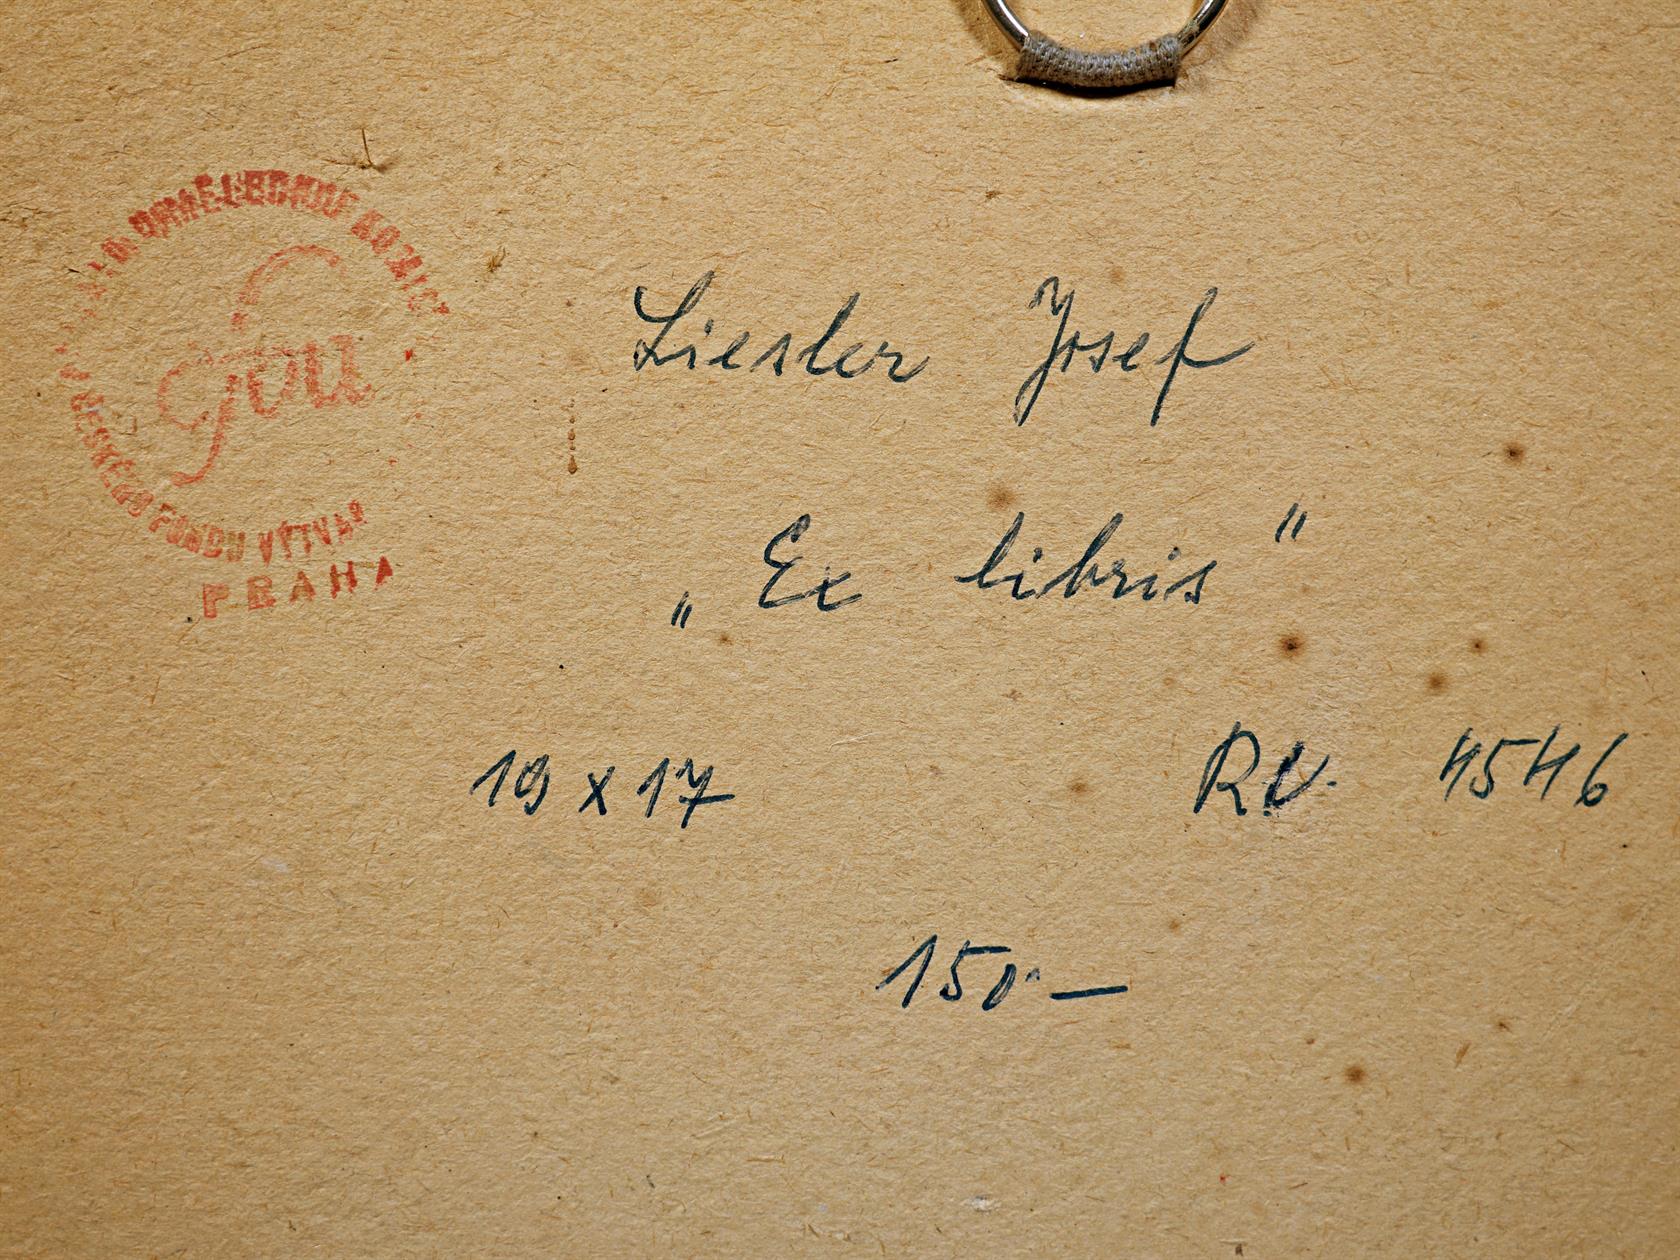 ČFVU
ČESKÉHO FONDU VÝTVAR
PRAHA
Liesler Josef
„Ex libris"
19 x 17
4546
150.—